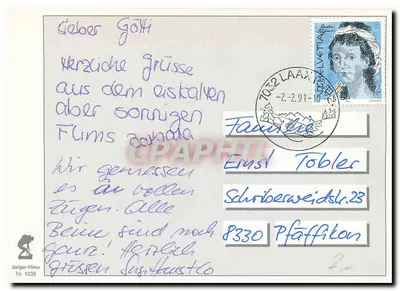 Lieber Götti
Herzliche Grüsse
aus dem eiskalten
aber sonnigen
Flims
Wir geniessen
es in vollen
Zügen. Alle
Beine sind noch
ganz! Herzlich
grüssen
HELVETIA
7032 LAAX
-2.-2.91-10
Familie
Ernst Tobler
Schriberweidstr. 23
8330 Pfäffikon
Geiger Flims
Nr. 1038
2.-